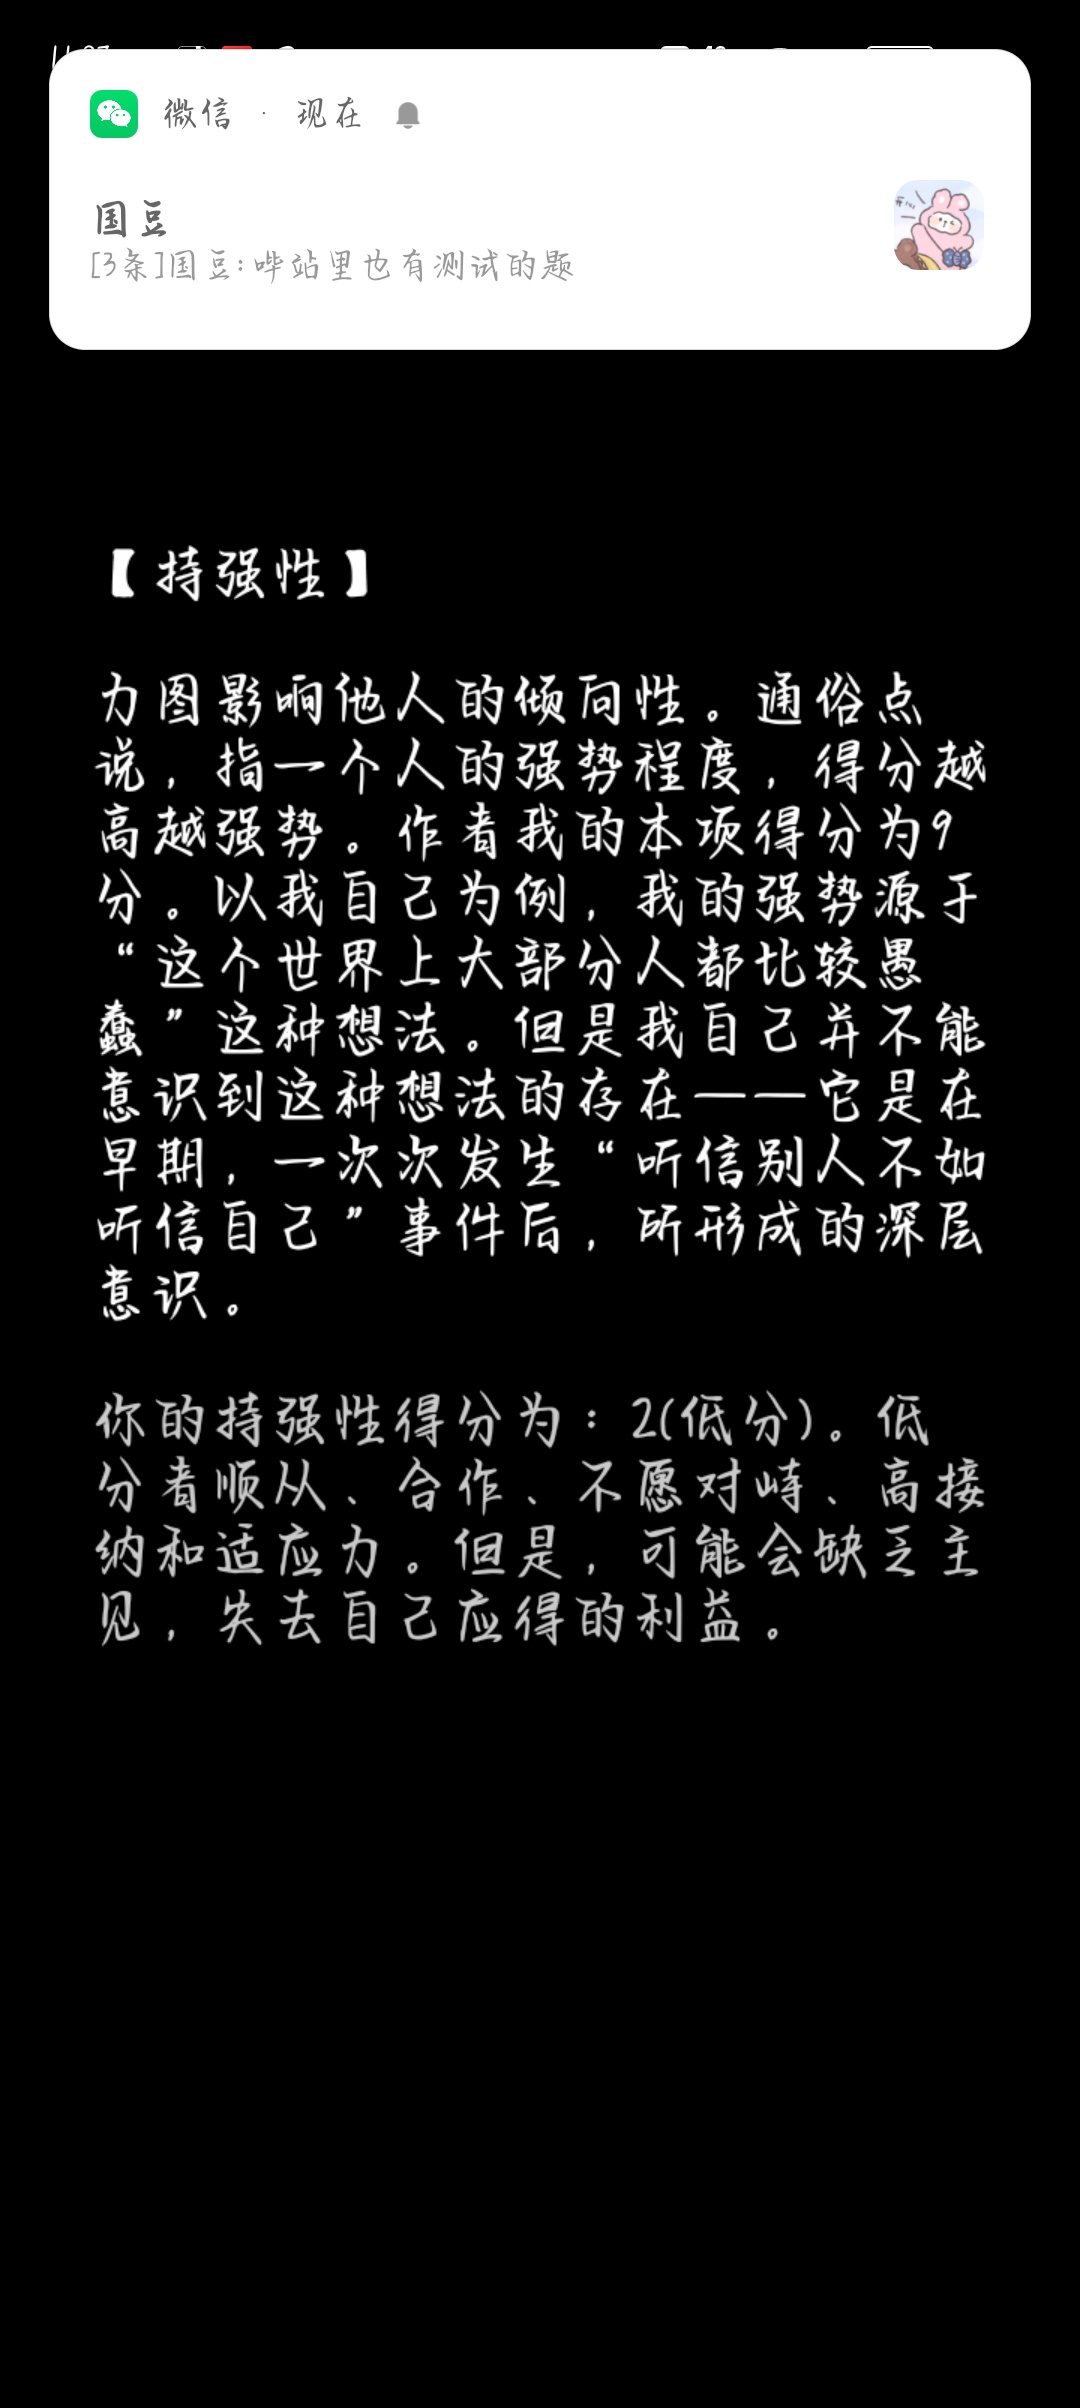 微信 · 现在
国豆
[3条]国豆:哔站里也有测试的题
【持强性】
力图影响他人的倾向性。通俗点
说，指一个人的强势程度，得分越
高越强势。作者我的本项得分为9
分。以我自己为例，我的强势源于
“这个世界上大部分人都比较愚
蠢”这种想法。但是我自己并不能
意识到这种想法的存在——它是在
早期，一次次发生“听信别人不如
听信自己”事件后，所形成的深层
意识。
你的持强性得分为：2(低分)。低
分者顺从、合作、不愿对峙、高接
纳和适应力。但是，可能会缺乏主
见，失去自己应得的利益。